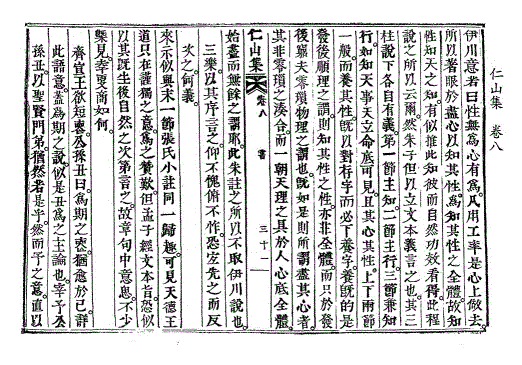 仁山集 卷八
伊川意者曰性無爲心有爲凡用工率是心上做去
所以著眼於盡心以知其性爲知其性之全體故知
性知天之知有似推此知彼而自然功效看得此程
說之所以云爾然朱子但以立文本義言之也其三
柱說下各自有義第一節主知二節主行三節兼知
行知如天事天立命底可見且其心其性上下兩節
一般而養其性既以對存字而必下養字養既的是
發後順理之謂則知其性之性亦非全體而只於發
後窮夫零瑣物理之謂也既如是則所謂盡其心者
其非零瑣之湊合而一朝天理之具於人心底全體
仁山集 卷八 書 三十一
始盡而無餘之謂耶此朱註之所以不取伊川說也
三樂以其序言之仰不愧俯不怍恐宜先之而反
次之何義
來示似與末一節張氏小註同一歸趣可見天德王
道只在謹獨之意爲之贊歎但孟子經文本旨恐似
以其既生後自然之次第言之故章句中意思不少
槩見幸更商如何
齊宣王欲短喪公孫丑曰爲期之喪猶愈於已詳
此語意蓋爲期之說似是丑爲之主論也宰予公
孫丑以聖賢門弟猶然者是乎然而予之意直以